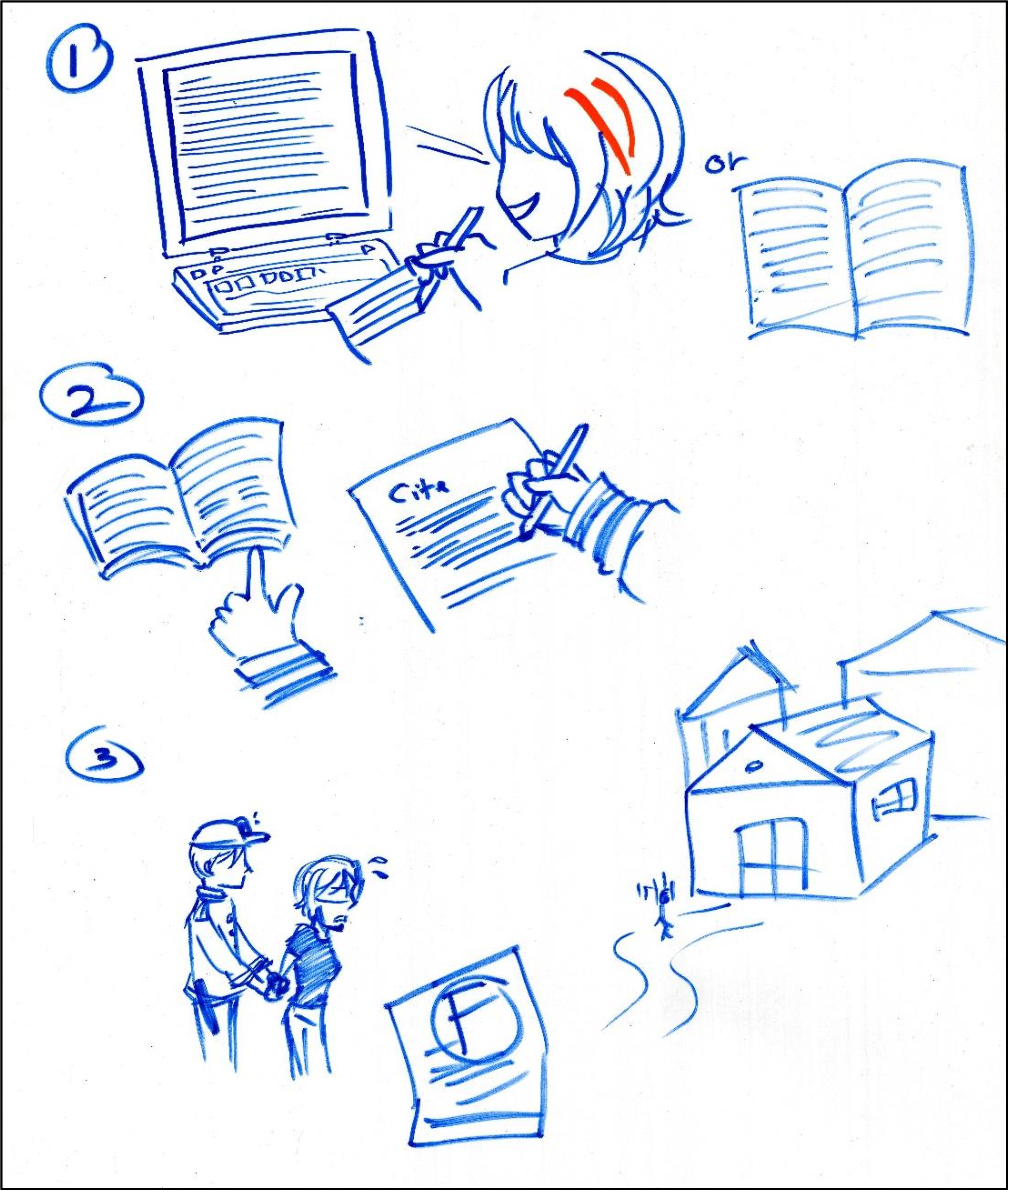 1
or
2
Cite
3
F